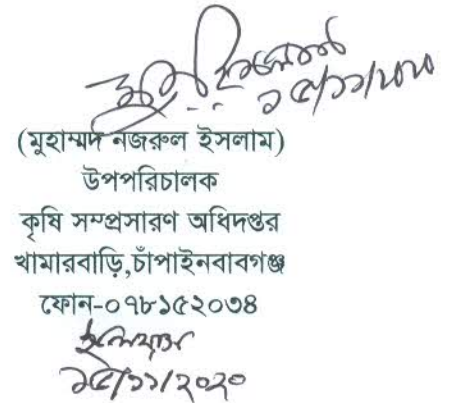 ১৫/১১/২০২০
(মুহাম্মদ নজরুল ইসলাম)
উপপরিচালক
কৃষি সম্প্রসারণ অধিদপ্তর
খামারবাড়ি,চাঁপাইনবাবগঞ্জ
ফোন-০৭৮১৫২০৩৪
১৫/১১/২০২০